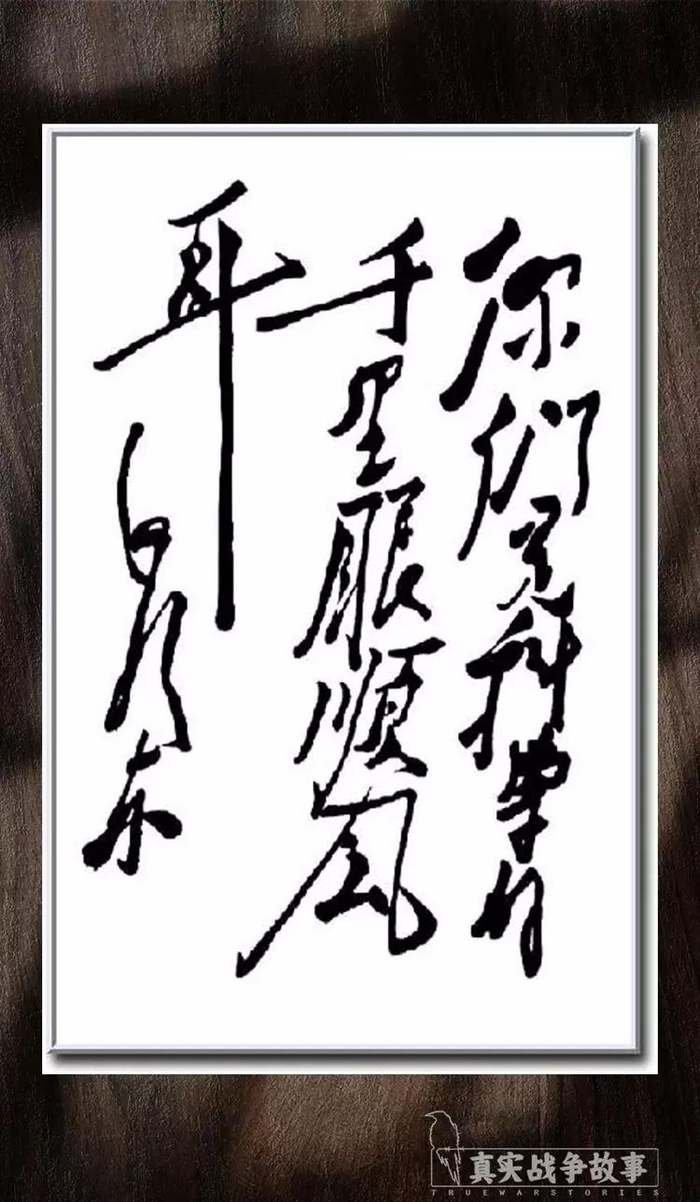 你们是科学的
千里眼顺风
耳
毛泽东
真实战争故事
TRUEWARSTORIES